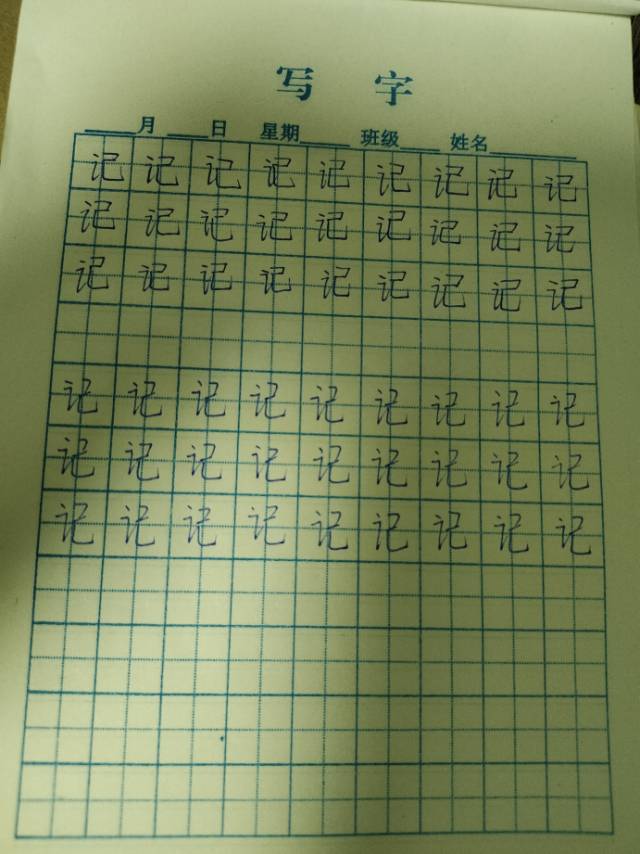 写 字
____月____日 星期____ 班级____ 姓名________
记 记 记 记 记 记 记 记 记
记 记 记 记 记 记 记 记 记
记 记 记 记 记 记 记 记 记
记 记 记 记 记 记 记 记 记
记 记 记 记 记 记 记 记 记
记 记 记 记 记 记 记 记 记